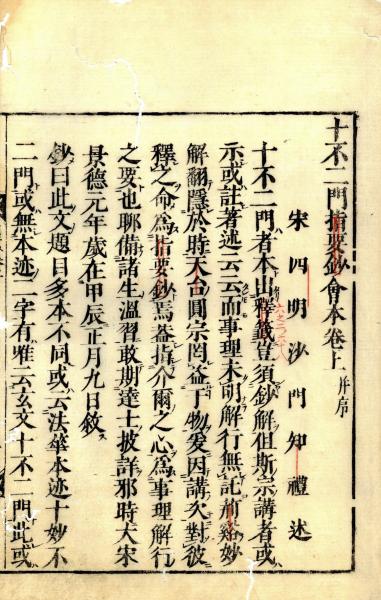 十不二門指要鈔會本卷上 并序
宋四明沙門知禮述
十不二門者本出釋籤豈須鈔解但斯宗講者或
示或註著述云云而事理未明解行無託荊谿妙
解翻隱於時天台圓宗罔益于物爰因講次對彼
釋之命爲指要鈔焉蓋指介爾之心爲事理解行
之要也聊備諸生溫習敢期達士披詳邪時大宋
景德元年歲在甲辰正月九日敘
鈔曰此文題目多本不同或云法華本迹十妙不
二門或無本迹二字有唯云玄文十不二門此或